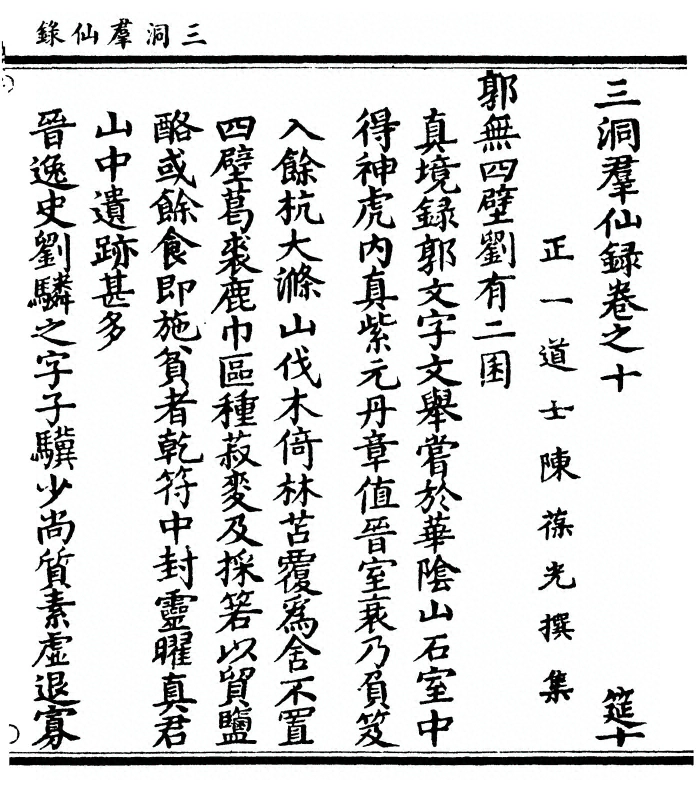 三洞羣仙錄
三洞羣仙録卷之十 筵十
正一道士陳葆光撰集
郭無四壁劉有二囷
真境錄郭文字文舉嘗於華陰山石室中
得神虎內真紫元丹章值晉室衰乃負笈
入餘杭大滌山伐木倚林苫覆爲舍不置
四壁葛裘鹿巾區種菽麥及採箬以貿鹽
酪或餘食即施貧者乾符中封靈曜真君
山中遺跡甚多
晉逸史劉驎之字子驥少尚質素虛退寡